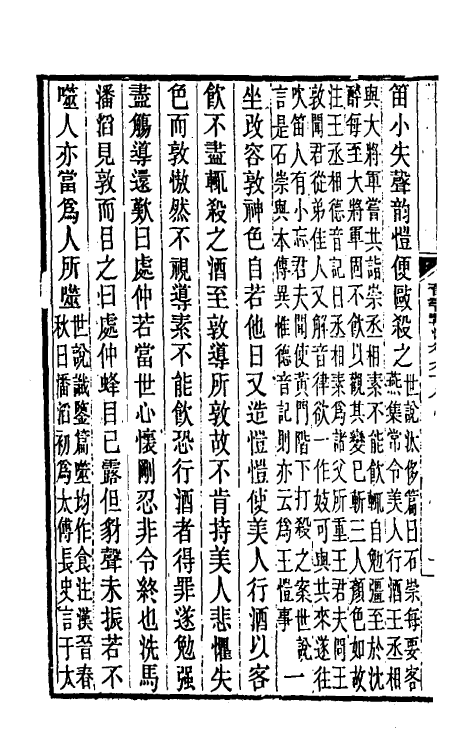 笛小失聲韵愷便敺殺之世說汰侈篇曰石崇每要客
燕集常令美人行酒王丞相
與大將軍嘗共詣崇丞相素不能飲輒自勉彊至於沈
醉每至大將軍固不飲以觀其變已斬三人顏色如故
注王丞相德音記曰丞相素為諸父所重王君夫問王
敦聞君從弟佳人又解音律欲一作妓可與共來遂往
吹笛人有小忘君夫聞使黃門階下打殺之案世說
言是石崇與本傳異惟德音記則亦云為王愷事
一
坐改容敦神色自若他日又造愷愷使美人行酒以客
飲不盡輒殺之酒至敦導所敦故不肯持美人悲懼失
色而敦傲然不視導素不能飲恐行酒者得罪遂勉强
盡觴導還歎曰處仲若當世心懷剛忍非令終也洗馬
潘滔見敦而目之曰處仲蜂目已露但豺聲未振若不
噬人亦當爲人所噬世說識鑒篇噬均作食注漢晉春
秋曰潘滔初為太傅長史言于太